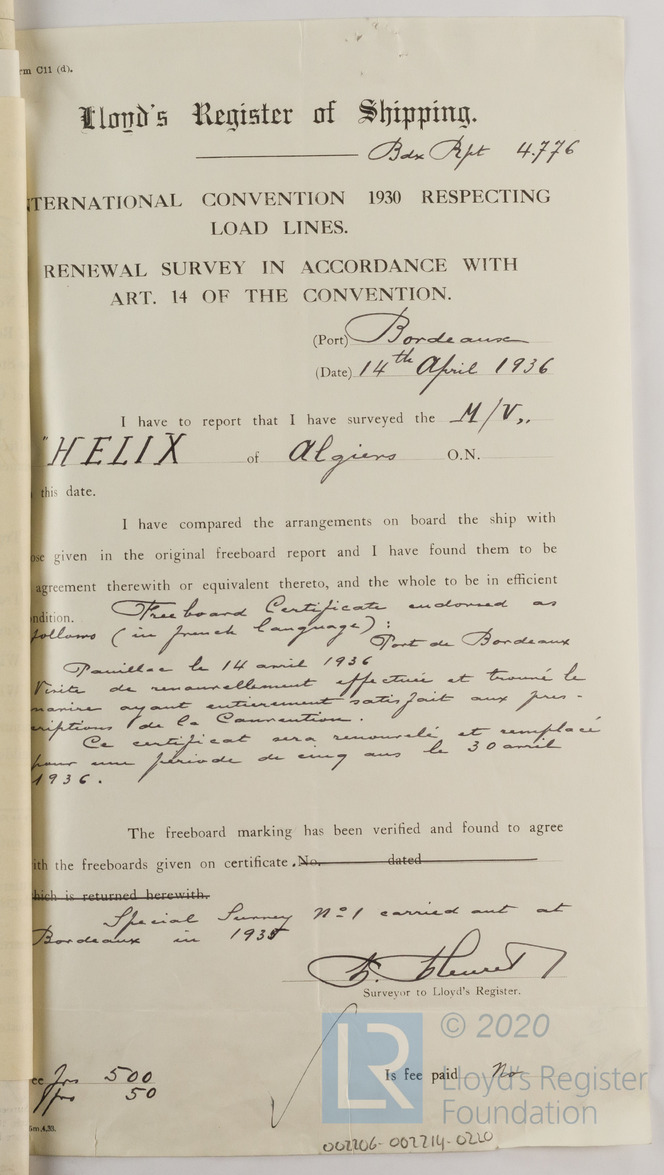 rm C11 (d).
Lloyd's Register of Shipping.
Bdx Rpt 4.776
NTERNATIONAL CONVENTION 1930 RESPECTING
LOAD LINES.
RENEWAL SURVEY IN ACCORDANCE WITH
ART. 14 OF THE CONVENTION.
(Port) Bordeaux
(Date) 14th April 1936
I have to report that I have surveyed the M/V,,
"HELIX of Algiers O.N.
this date.
I have compared the arrangements on board the ship with
ose given in the original freeboard report and I have found them to be
agreement therewith or equivalent thereto, and the whole to be in efficient
ndition. Freeboard Certificate endorsed as
follows (in french language):
Port de Bordeaux
Pauillac le 14 avril 1936
Visite de renouvellement effectuée et trouvé le
navire ayant entièrement satisfait aux pres-
criptions de la Convention.
Ce certificat sera renouvelé et remplacé
pour une période de cinq ans le 30 avril
1936.
The freeboard marking has been verified and found to agree
ith the freeboards given on certificate. No. dated
hich is returned herewith.
Special Survey No 1 carried out at
Bordeaux in 1935
Surveyor to Lloyd's Register.
ee frs 500
frs 50
Is fee paid No
5m,4,33.
© 2020
LR
Lloyd's Register
Foundation
002206-002214-0220